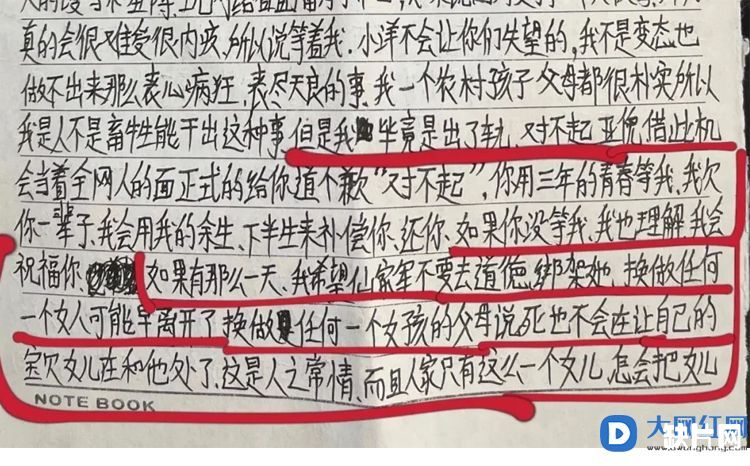 真的会很难受很内疚,所以说等着我.小洋不会让你们失望的,我不是变态也
做不出来那么丧心病狂、丧尽天良的事.我一个农村孩子父母都很朴实所以
我是人不是畜牲能干出这种事但是我毕竟是出了轨.对不起亚倪借此机
会当着全网人的面正式的给你道个歉"对不起",你用三年的青春等我,我欠
你一辈子、我会用我的余生、下半生来补偿你、还你、如果你没等我、我也理解我会
祝福你、如果有那么一天、我希望仙家军不要去道德绑架她、换做任何
一个女人可能早离开了换做任何一个女孩的父母说死也不会在让自己的
宝贝女儿在和他处了、这是人之常情、而且人家只有这么一个女儿,怎会把女儿
NOTE BOOK
D 大网红网
快片网